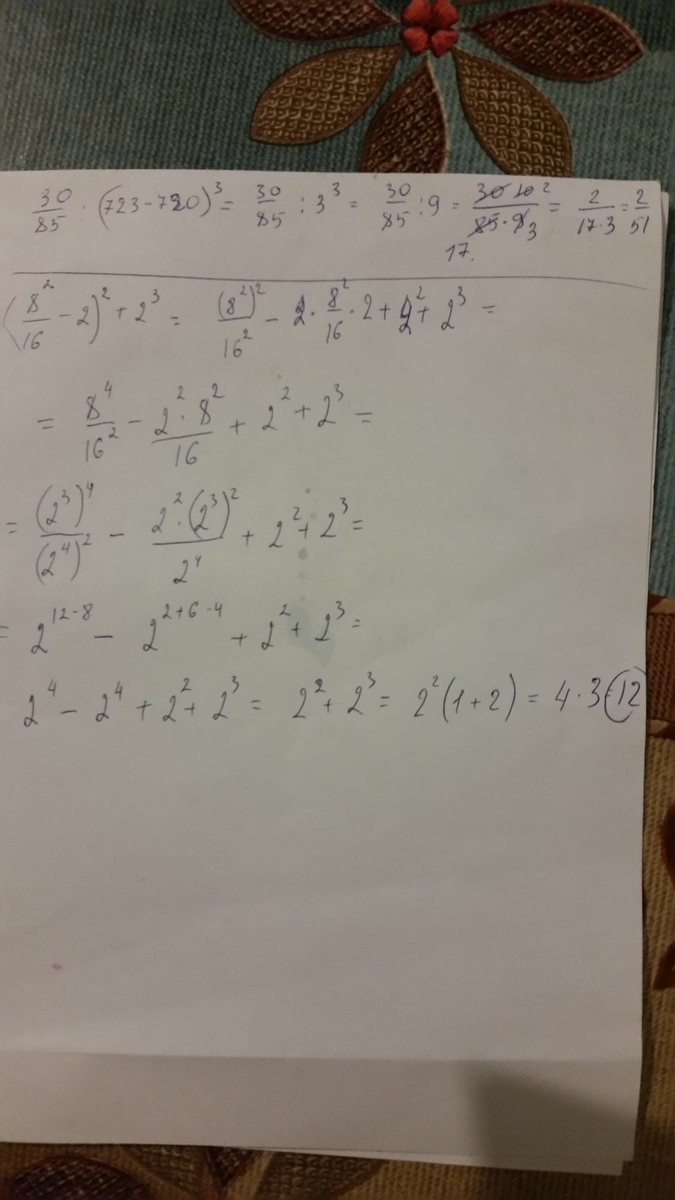 30/85 : (723-720)³ = 30/85 : 3³ = 30/85 : 9 = 30 10 2/85·9 3 = 2/17·3 = 2/51
17.
(8²/16 - 2)² + 2³ = (8²)²/16² - 2·8²/16·2 + 2² + 2³ =
= 8⁴/16² - 2²·8²/16 + 2² + 2³ =
= (2³)⁴/(2⁴)² - 2²·(2³)²/2⁴ + 2² + 2³ =
= 2¹²⁻⁸ - 2²⁺⁶⁻⁴ + 2² + 2³ =
2⁴ - 2⁴ + 2² + 2³ = 2² + 2³ = 2²(1+2) = 4·3=12